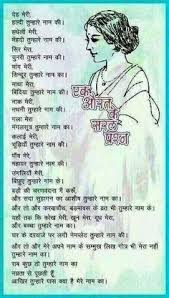 देह मेरी,
हल्दी तुम्हारे नाम की ।
हथेली मेरी,
मेहंदी तुम्हारे नाम की ।
सिर मेरा,
चुनरी तुम्हारे नाम की ।
मांग मेरी,
सिन्दूर तुम्हारे नाम का ।
माथा मेरा,
बिंदिया तुम्हारे नाम की ।
नाक मेरी,
नथनी तुम्हारे नाम की ।
गला मेरा,
मंगलसूत्र तुम्हारे नाम का ।
कलाई मेरी,
चूड़ियाँ तुम्हारे नाम की ।
पाँव मेरे,
महावर तुम्हारे नाम की ।
उंगलियाँ मेरी,
बिछुए तुम्हारे नाम के ।
बड़ों की चरण-वंदना मैं करूँ,
और सदा सुहागन का आशीष तुम्हारे नाम का ।
और तो और करवाचौथ, बड़मावस के व्रत भी तुम्हारे नाम के ।
यहाँ तक कि कोख मेरी, खून मेरा, दूध मेरा,
और बच्चा तुम्हारे नाम का ।
घर के दरवाज़े पर लगी नेमप्लेट तुम्हारे नाम की ।
और तो और मेरे अपने नाम के सम्मुख लिखा गोत्र भी मेरा नहीं
तुम्हारे नाम का ।
सब कुछ तो तुम्हारे नाम का
नम्रता से पूछती हूँ
आखिर तुम्हारे पास क्या है मेरे नाम का ।
एक
औरत
के
प्रश्न